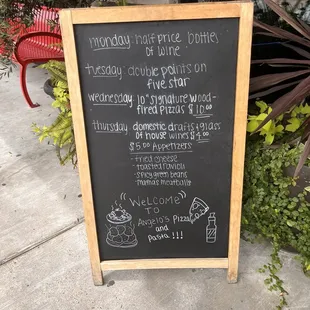 monday: half price bottles
of wine
tuesday: double points on
five star
wednesday: 10" signature wood-
fired pizzas $10.00
thursday: domestic drafts + glass
of house wines $4.00
$5.00 Appetizers
- fried cheese
- toasted ravioli
- spicy green beans
- mama's meatballs
"WELCOME"
TO
Angelo's Pizza
and
Pasta!!!